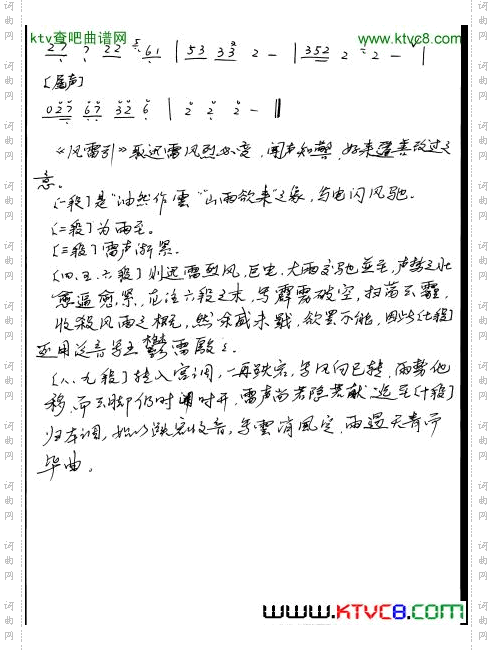 ktv查吧曲谱网 www.ktvc8.com
2 7 7 2 2 5 6 1 | 5 3 3 3 2 - | 3 5 2 2 2 - |
[尾声]
0 2 7 6 7 3 2 6 | 2 2 2 - ‖
《风雷引》取迅雷风烈必变，闻声知警，如来迁善改过之
意。
[一段]是"油然作云""山雨欲来"之象，与电闪风驰。
[二段]为雨至。
[三段]雷声渐紧。
[四、五、六段]则迅雷烈风，巨电，大雨交驰並至，声势之壮
愈逼愈紧，在注六段之末，写霹雳破空，扫荡云霾，
收殺风雨之概，然余威未戢，欲罢不能，因此[七段]
还用泛音写其鬱雷殷。
[八、九段]转入宫调，一再跌宕，写风向已转，雨势他
移，而云脚仍时开，雷声尚若隐若献，迨至[十段]
归本调，始以跌宕收音，写雲消風定，雨过天青而
毕曲。
www.KTVC8.com
词曲网